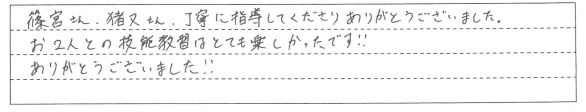 篠宮さん、猪又さん、丁寧に指導してくださりありがとうございました。
お2人との技能教習はとても楽しかったです!!
ありがとうございました!!